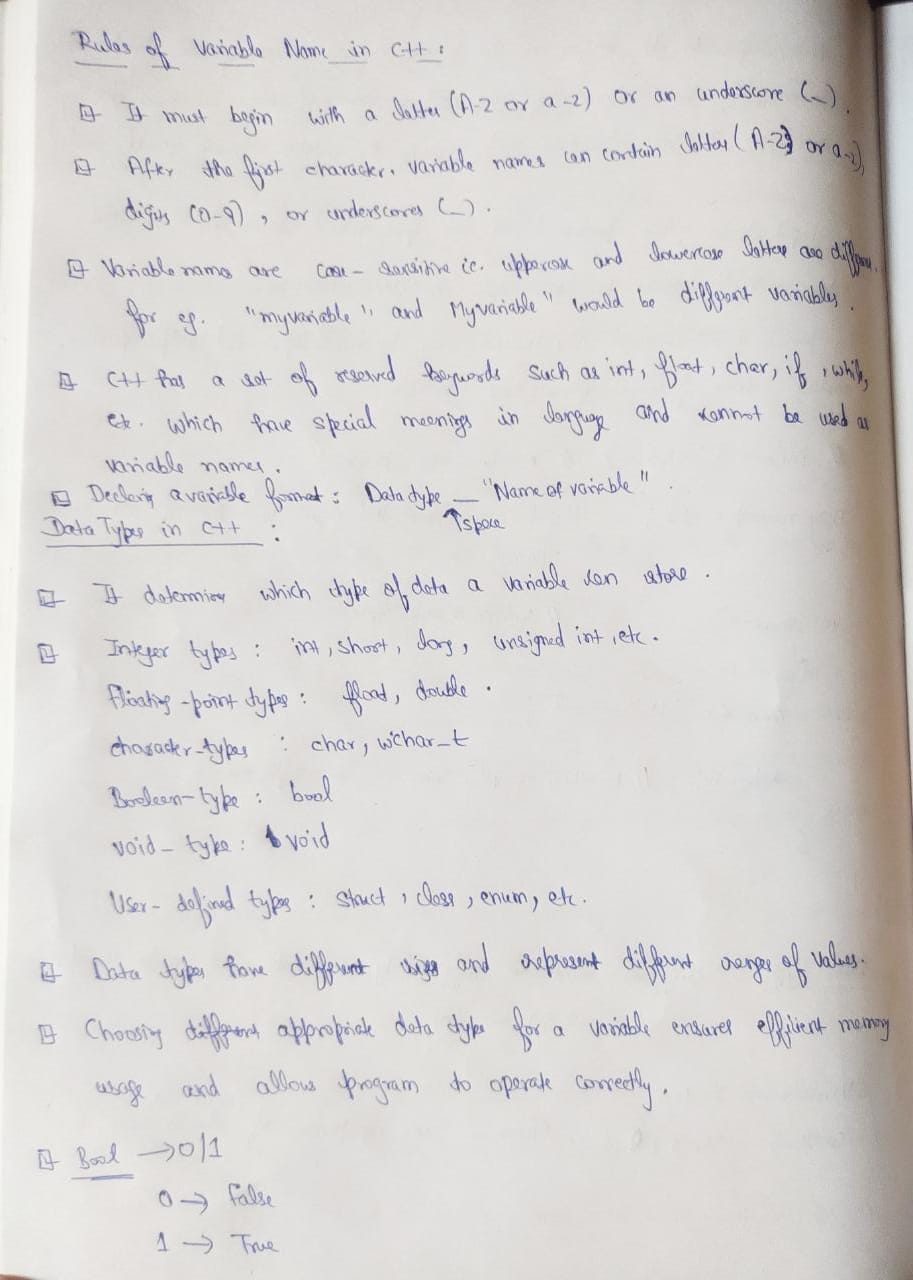 Rules of Variable Name in C++ :
It must begin with a letter (A-Z or a-z) or an underscore (_).
After the first character, variable names can contain letters (A-Z) or a-z),
digits (0-9), or underscores (_).
Variable names are case-sensitive ie. uppercase and lowercase letters are different.
for eg. "myvariable", and Myvariable" would be different variables.
C++ has a set of reserved keywords such as int, float, char, if, while,
etc. which have special meanings in language and cannot be used as
variable names.
Declaring a variable format : Data type _ "Name of variable".
↑space
Data Types in C++ :
It determine which type of data a variable can store.
Integer types : int, short, long, unsigned int, etc.
Floating-point types : float, double.
character-types : char, wchar_t
Boolean-type : bool
void-type : void
User-defined types : struct, class, enum, etc.
Data types have different sizes and represent different ranges of values.
Choosing different appropriate data type for a variable ensures efficient memory
usage and allows program to operate correctly.
Bool → 0/1
0 → False
1 → True